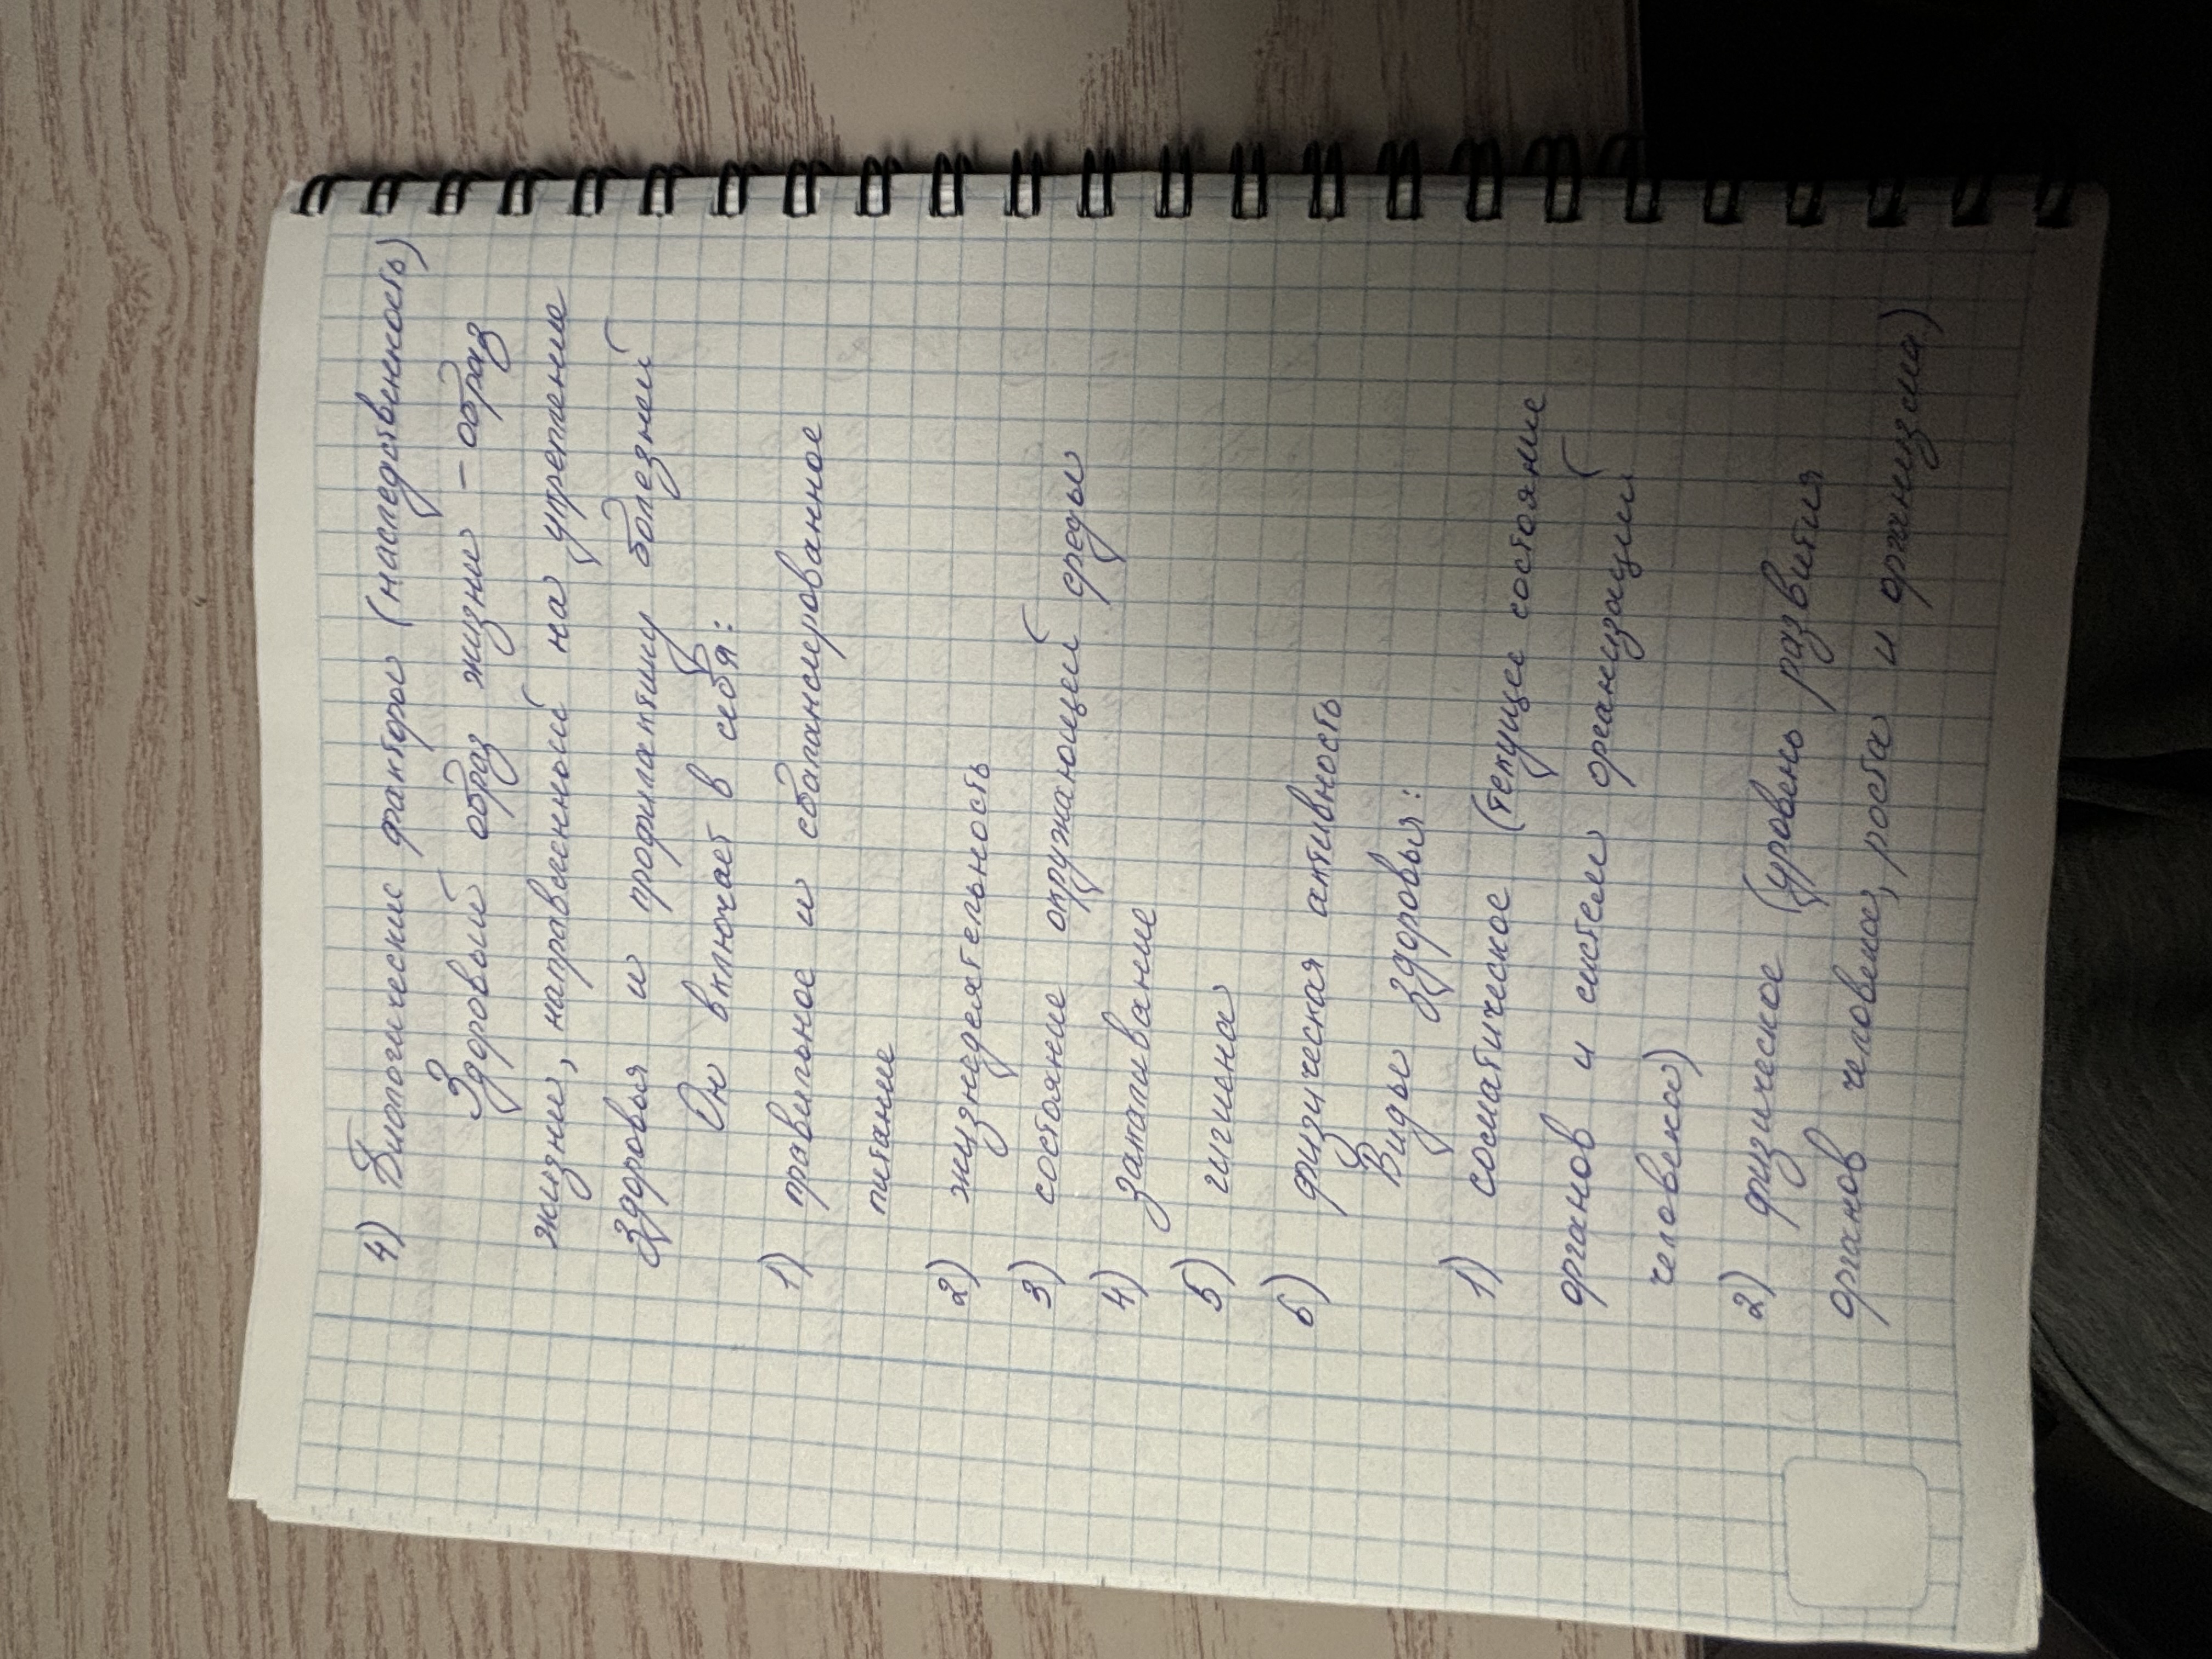 4) Биологические факторы (наследственность)
Здоровый образ жизни – образ
жизни, направленный на укрепление
здоровья и профилактику болезней
Он включает в себя:
1) правильное и сбалансированное
питание
2) жизнедеятельность
3) состояние окружающей среды
4) закаливание
5) гигиена
6) физическая активность
Виды здоровья:
1) соматическое (текущее состояние
органов и систем организаций
человека)
2) физическое (уровень развития
органов человека, роста и организма)